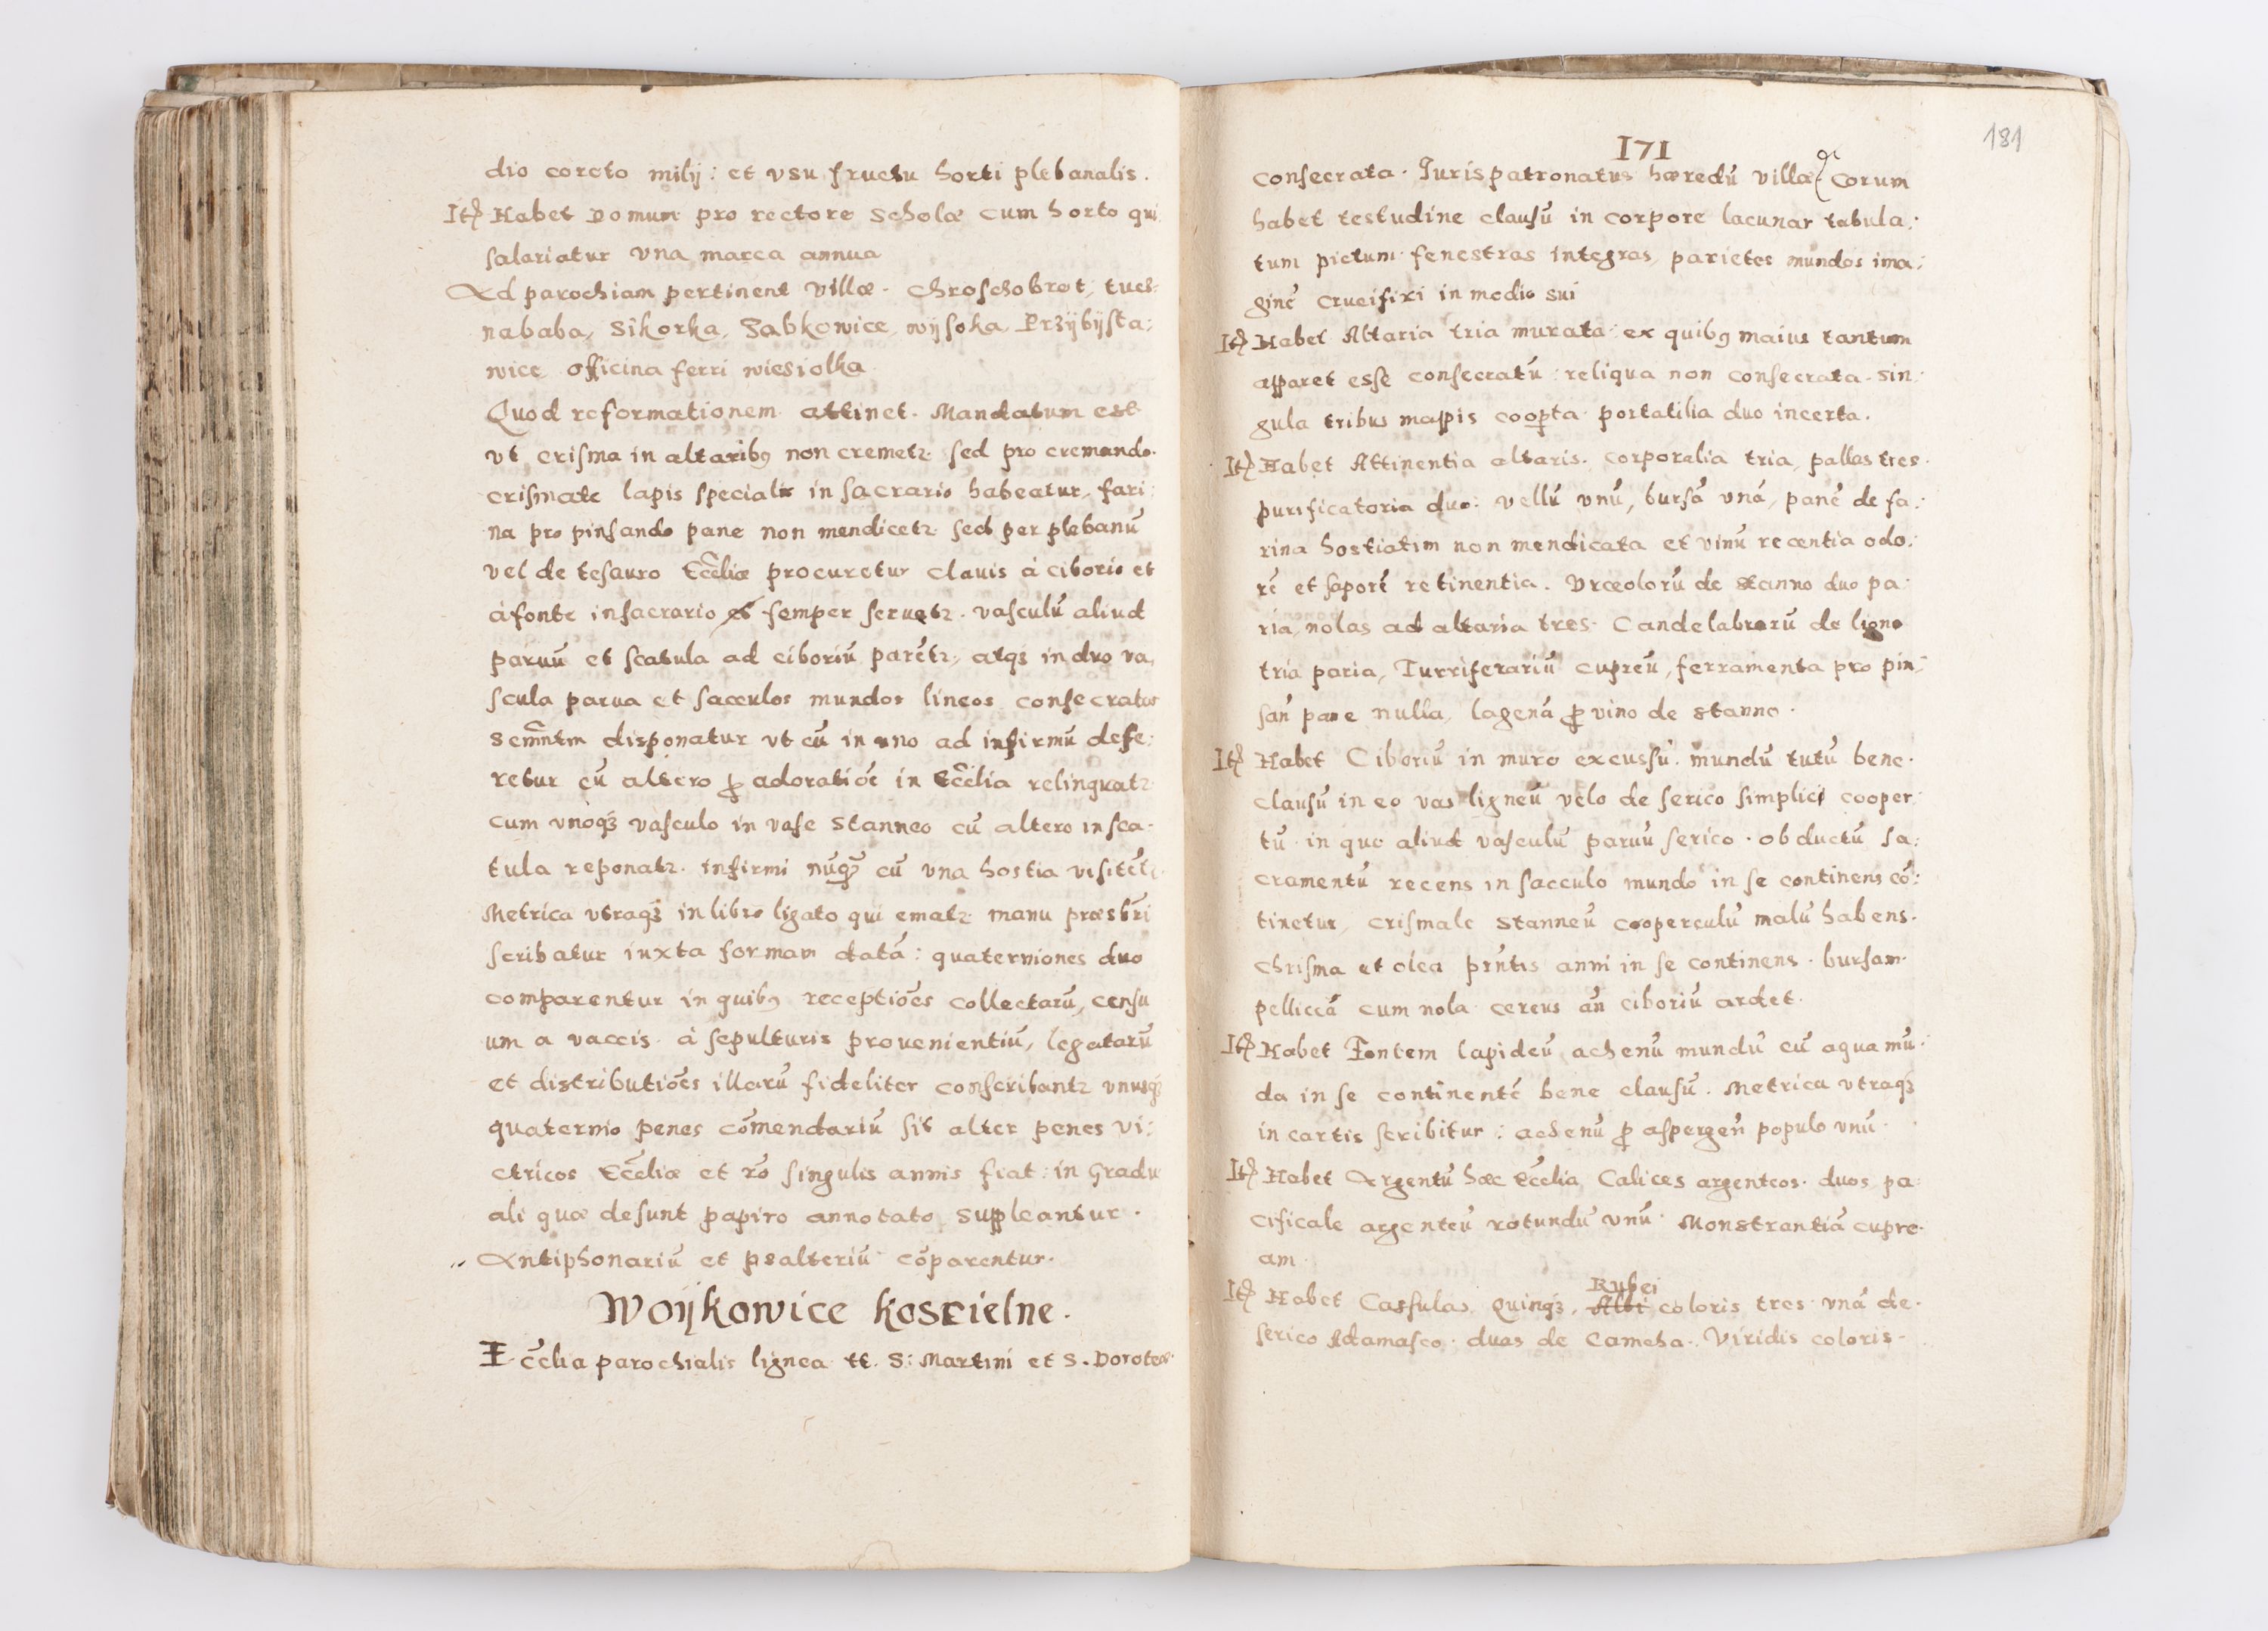 dio coreto milij : et vsu fructu horti plebanalis .
It Habet Domum pro rectore scholæ cum horto qui
salariatur vna marca annua
Ad parochiam pertinent villæ . Chroschobrot, tues:
nababa, Sikorka, Zabkowice, wijsoka, Przÿbÿsta:
wice officina ferri wiesiolka
Quod reformationem attinet . Mandatum est
vt crisma in altaribꝯ non cremetꝛ sed pro cremando
crismate lapis specialis in sacrario habeatur, fari:
na pro pinsando pane non mendicetꝛ sed per plebanũ
vel de tesauro Eccliæ procuretur clauis à ciborio et
à fonte in sacrario et semper seruetꝛ . vasculũ aliud
paruũ et scatula ad ciboriũ parẽtꝛ, atqꝫ in duo va,
scula parua et sacculos mundos lineos consecratos
Semñtm disponatur vt cũ in uno ad infirmũ defe:
retur cũ altero ꝓ adoratiõe in Ecclia relinquatꝛ
cum vnoqꝫ vasculo in vase stanneo cũ altero in sca-
tula reponatꝛ . infirmi nũqꝫ cũ vna hostia visitẽtꝛ
Metrica vtraqꝫ in libro ligato qui ematꝛ manu præsbr̃i
scribatur iuxta formam datã : quaterniones duo
comparentur in quibꝯ receptiões collectarũ, censu
um a vaccis . à sepulturis prouenientiũ, legatarũ
et distributiões illarũ fideliter conscribantꝛ vnusqꝫ
quaternio penes cõmendariũ sit alter penes vi:
ctricos Eccliæ et rõ singulis annis fiat : in Gradu
ali quæ desunt papiro annotato suppleantur .
Antiphonariũ et psalteriũ cõparentur .
Woÿkowice koscielne .
Ecclia parochialis lignea tt. S: Martini et S. Doroteæ
171
181
consecrata . Iuris patronatus hæredũ villæ Corum
habet testudine clausũ in corpore lacunar tabula:
tum pictum fenestras integras, parietes mundos ima:
ginẽ crucifixi in medio sui
It Habet Altaria tria murata : ex quibꝯ maius tantum
apparet esse consecratũ : reliqua non consecrata . sin:
gula tribus mappis coopta portatilia duo incerta .
It Habet Attinentia altaris . corporalia tria, pallas tres .
purificatoria duo : vellũ vnũ, bursã vnã, panẽ de fa:
rina hostiatim non mendicata et vinũ recentia odo:
rẽ et saporẽ retinentia . Vrceolorũ de stanno duo pa:
ria, nolas ad altaria tres . Candelabrorũ de ligno
tria paria, Turriferariũ cupreũ, ferramenta pro pin:
sañ pane nulla, lagenã ꝓ vino de stanno .
It Habet Ciboriũ in muro excussũ . mundũ tutũ bene .
clausũ in eo vas ligneũ velo de serico simplici cooper:
tũ . in quo aliud vasculũ paruũ serico . obductũ sa:
cramentũ recens in sacculo mundo in se continens cõ:
tinetur, crismale stanneũ cooperculũ malũ habens .
chrisma et olea pr̃ntis anni in se continens . bursam
pelliceã cum nola cereus añ ciboriũ ardet .
It Habet Fontem lapideũ achenũ mundũ cũ aqua mũ:
da in se continentẽ bene clausũ . Metrica vtraqꝫ
in cartis scribitur : achenũ ꝓ aspergeñ populo vnũ .
It Habet Argentũ hæc Ecclia, Calices argenteos . duos, pa
cificale argenteũ rotundũ vnũ . Monstrantiã cupre .
am .
It Habet Cassulas, quinqꝫ . Albi Rubei coloris tres . vnã de .
serico Adamasco . duas de Cameha . Viridis coloris .